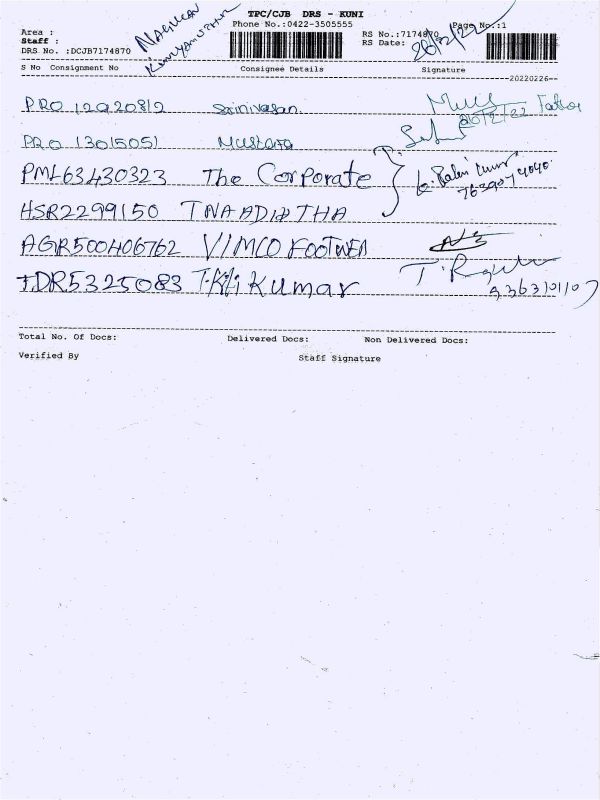 TPC/CJB DRS - KUNI
Phone No.:0422-3505555
Page No.:1
Area :
Staff :
DRS No. :DCJB7174870
RS No.:7174870
RS Date: 26/2/22
S No Consignment No Consignee Details Signature
20220226
PRO 12920812 Srinivasan
26/2/22
PRO 13015051 Mustafa
PML63430323 The Corporate
7639074040
HSR2299150 TNAADIDTHA
AGR500406762 VIMCO FOOTWEA
TDR5325083 T.Kili Kumar
9363101107
Total No. Of Docs: Delivered Docs: Non Delivered Docs:
Verified By Staff Signature